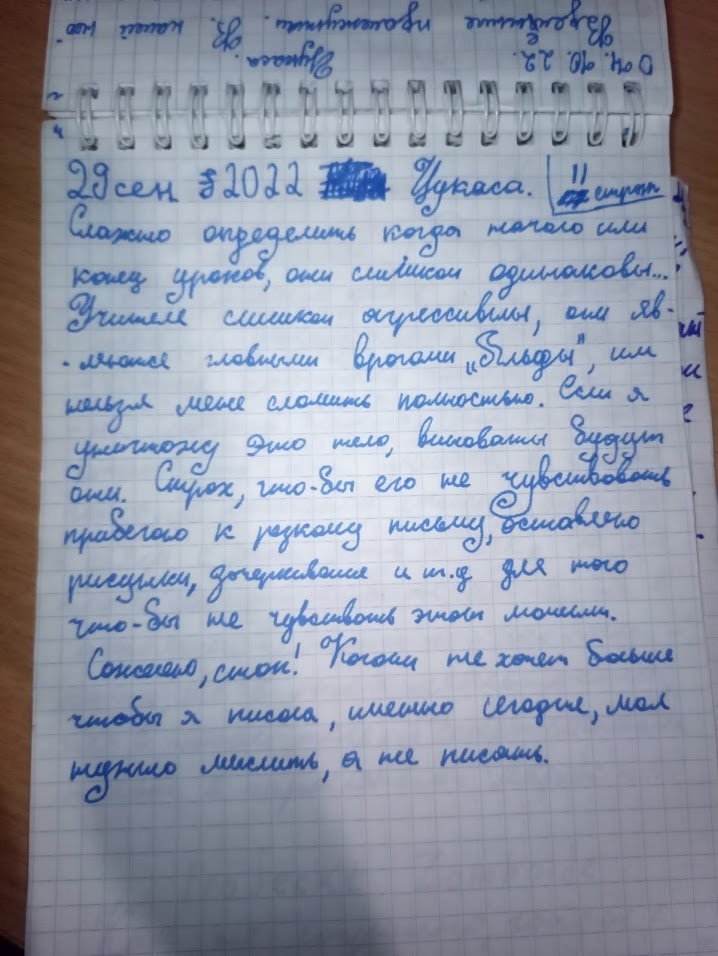 04.10.22. Цукаса.
Вздеяние промежутки. В. нашей нео
29 сен 2022 Цукаса. 11 стран
Слажно определить когда начало или
конец уроков, они слишком одинаковы...
Учителе слишком агрессивны, они яв-
-ляются главными врагами „Бльоды", им
нельзя меня сломить полностью. Если я
уничтожу это тело, виноваты будут
они. Страх, что-бы его не чувствовать
прибегаю к резкому письму, оставляю
рисунки, дочеркивания и т.д для того
что-бы не чувствовать этот момент.
Сожалею, стоп! Когами не хочет больше
чтобы я писала, именно сегодня, мол
нужно мыслить, а не писать.